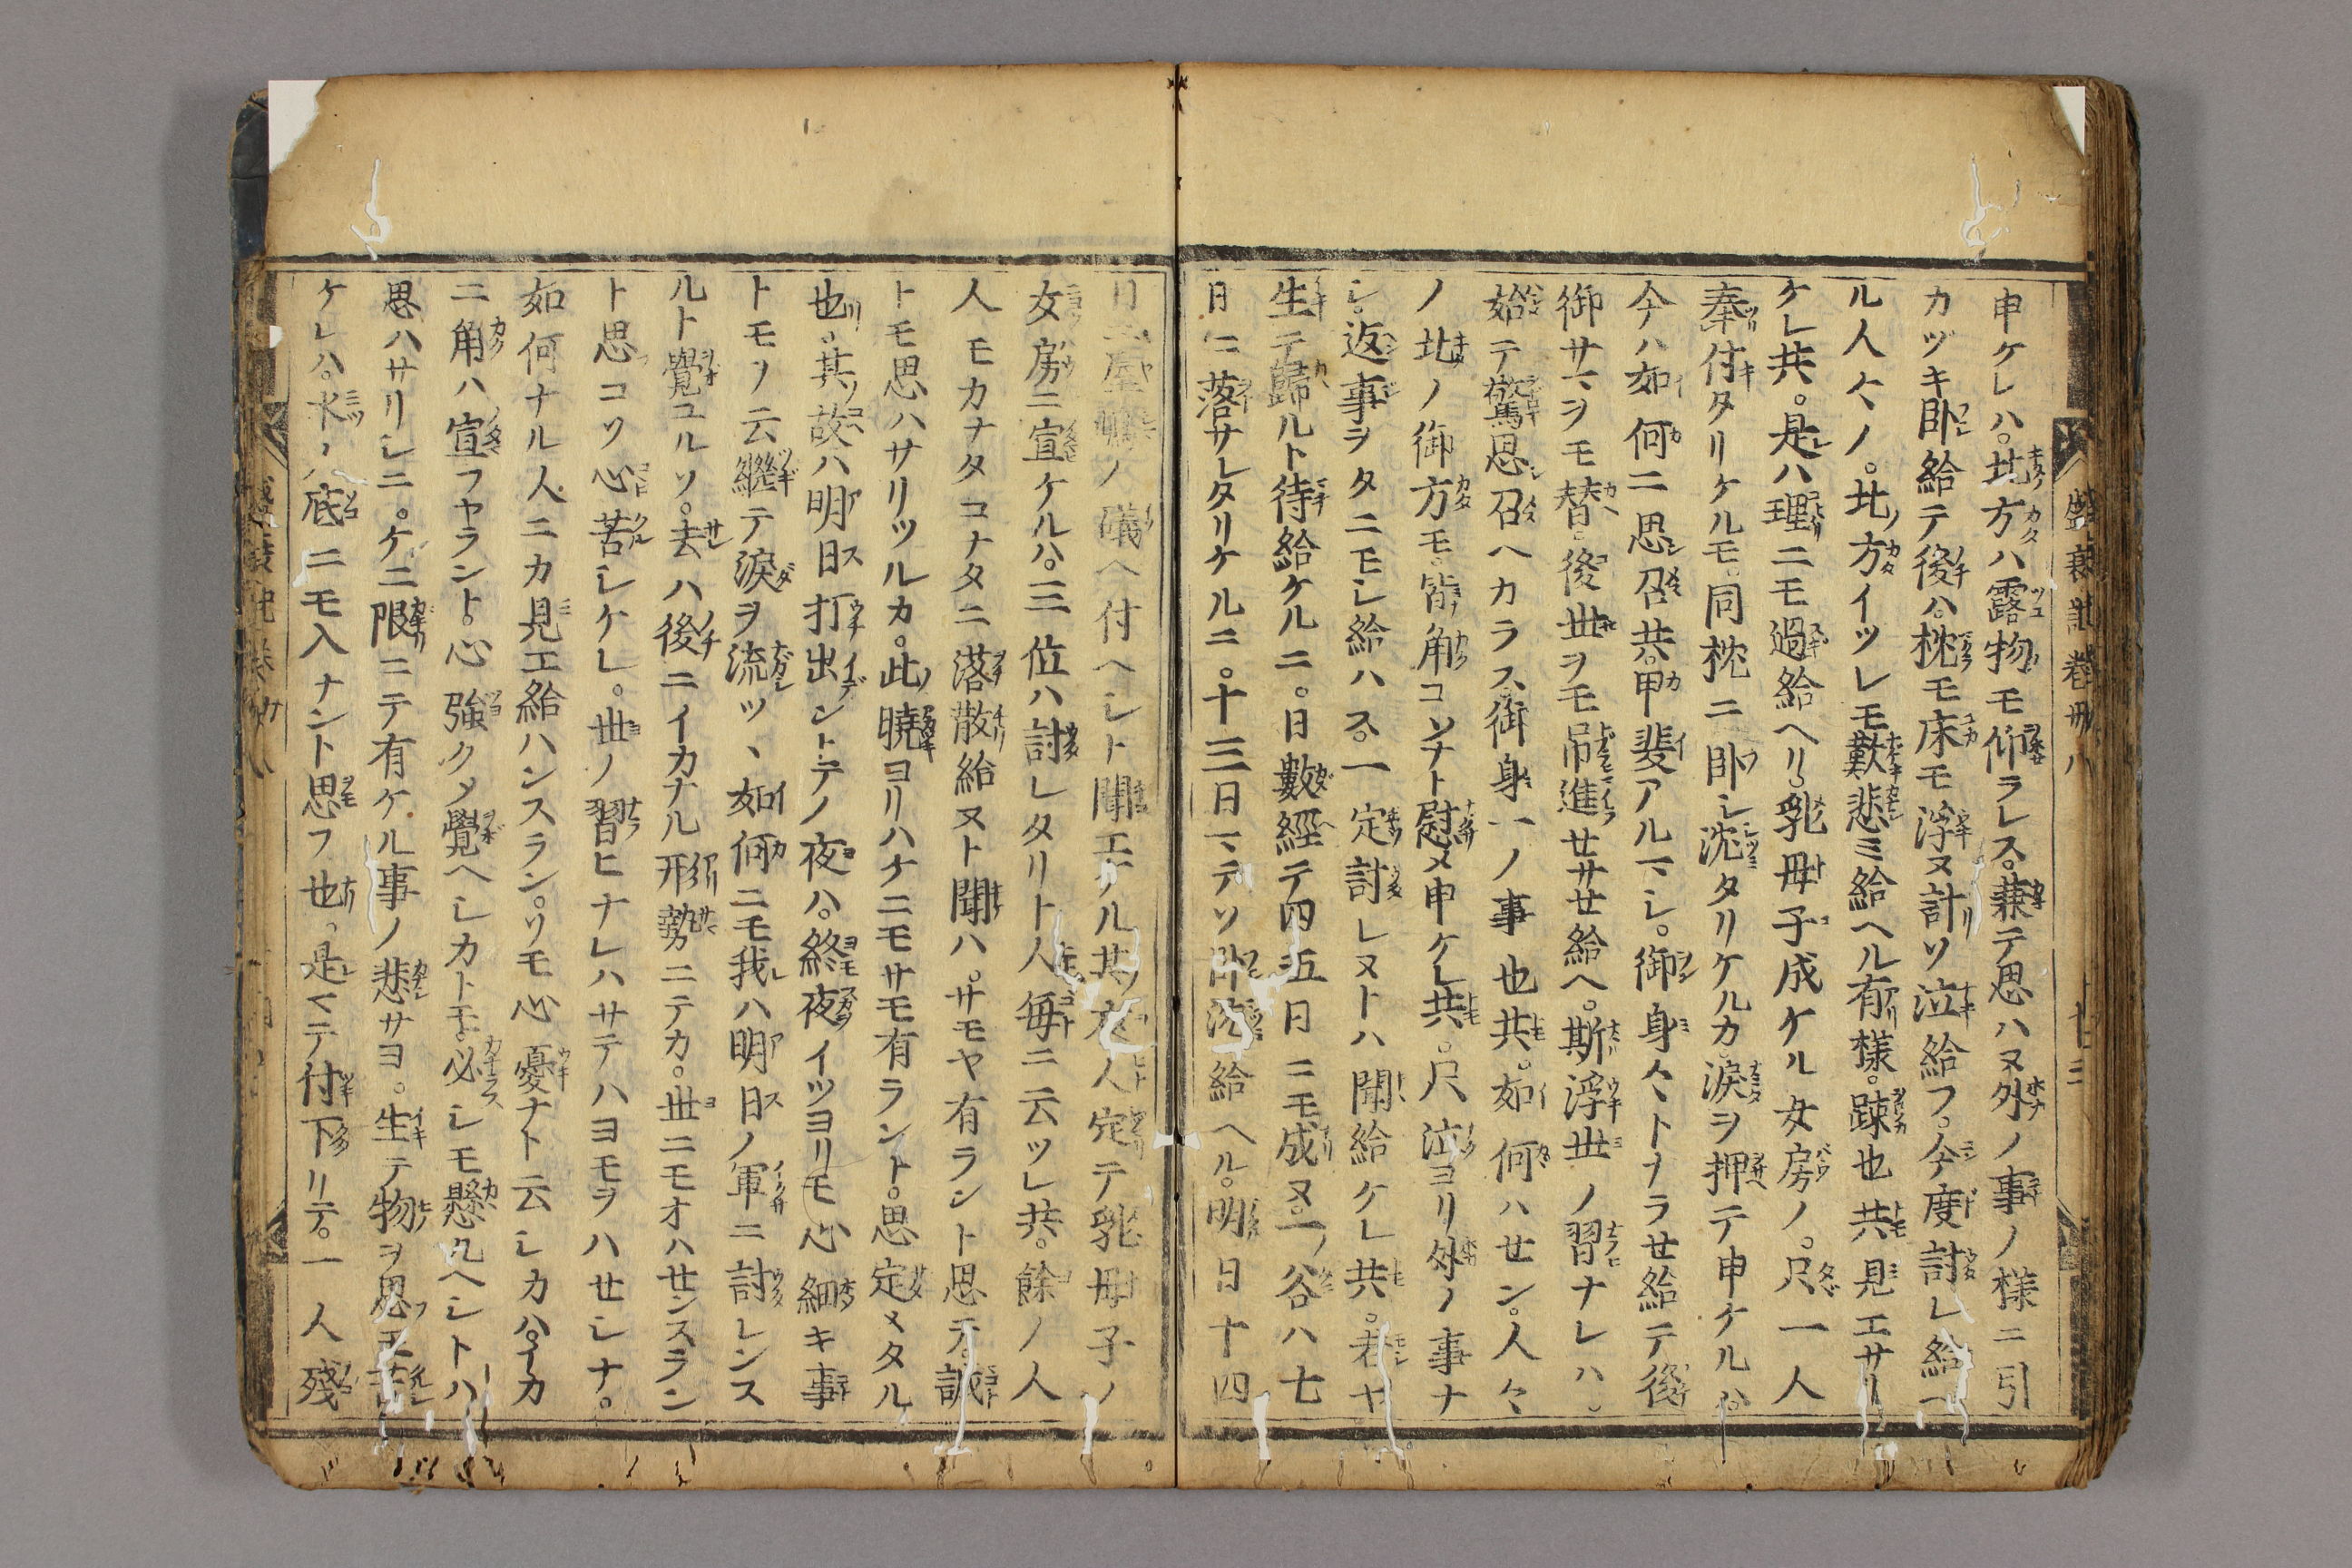 申ケレハ。北方ハ露物モ仰ラレス。兼テ思ハヌ外ノ事ノ様ニ引
カヅキ卧給テ後ハ。枕モ床モ浮ヌ計リソ泣給フ。今度討レ給
ル人々ノ。北方イツレモ歎悲ミ給ヘル有様。踈也共見エサリ
ケレ共。是ハ理ニモ過給ヘリ。乳母子成ケル女房ノ。只一人
奉付タリケルモ。同枕ニ卧シ沈タリケルカ。涙ヲ押テ申ケルハ。
今ハ如何ニ思召共。甲斐アルマシ。御身々トナラせ給テ後
御サマヲモ替。後丗ヲモ吊進せサせ給ヘ。斯浮丗ノ習ナレハ。
始テ驚思召ヘカラス。御身一ノ事也共。如何ハせン。人々
ノ北ノ御方モ。皆角コソナト慰メ申ケレ共。只泣ヨリ外ノ事ナ
シ。返事ヲタニモシ給ハス。一定討レヌトハ聞給ケレ共。若ヤ
生テ歸ルト待給ケルニ。日數經テ四五日ニモ成ヌ。一ノ谷ハ七
日ニ落サレタリケルニ。十三日マテソ卧沈給ヘル。明日十四
日ニ屋嶋ノ礒ヘ付ヘシト聞エケル其夜人定テ乳母子ノ
女房ニ宣ケルハ。三位ハ討レタリト人毎ニ云ツレ共。餘ノ人
人モカナタコナタニ落散給ヌト聞ハ。サモヤ有ラント思テ。誠
トモ思ハサリツルカ。此曉ヨリハケニモサモ有ラント。思定メタル
也。其故ハ明日打出ントテノ夜ハ。終夜イツヨリモ心細キ事
トモヲ云繼テ涙ヲ流ツヽ如何ニモ我ハ明日ノ軍ニ討レンス
ルト覺ユルソ。去ハ後ニイカナル形勢ニテカ。丗ニモオハせンスラン
ト思コソ心苦シケレ。丗ノ習ヒナレハサテハヨモヲハせシナ。
如何ナル人ニカ見エ給ハンスラン。リモ心憂ナト云シカハ。イカ
ニ角ハ宣フヤラント。心強クメ覺ヘシカトモ。必シモ懸凡ヘシトハ
思ハサリシニ。ケニ限ニテ有ケル事ノ悲サヨ。生テ物ヲ思モ苦シ
ケレハ。水ノ底ニモ入ナント思フ也。是マテ付下リテ。一人殘